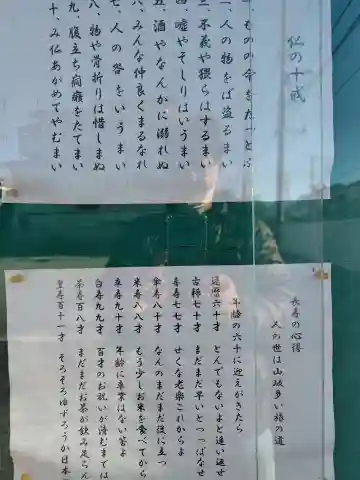 仏の十戒
一、ものの命をたっとぶ
二、人の物をば盗るまい
三、不義や猥らはするまい
四、嘘やそしりはいうまい
五、酒やなんかに溺れぬ
六、みんな仲良くまるなれ
七、人の咎をいうまい
八、物や骨折りは惜しまぬ
九、腹立ち癇癪をたてまい
十、み仏あがめてやむまい
長寿の心得
人の世は山坂多い旅の道
年齢の六十に迎えがきたら
還暦六十才 とんでもないよと追い返せ
古稀七十才 まだまだ早いとつっぱなせ
喜寿七七才 せくな老楽これからよ
傘寿八十才 なんのまだまだ役に立つ
米寿八八才 もう少しお米を食べてから
卒寿九十才 年齢に卒業はない筈よ
白寿九九才 百才のお祝いが済むまでは
茶寿百八才 まだまだお茶が飲み足らん
皇寿百十一才 そろそろゆずろうか日本一